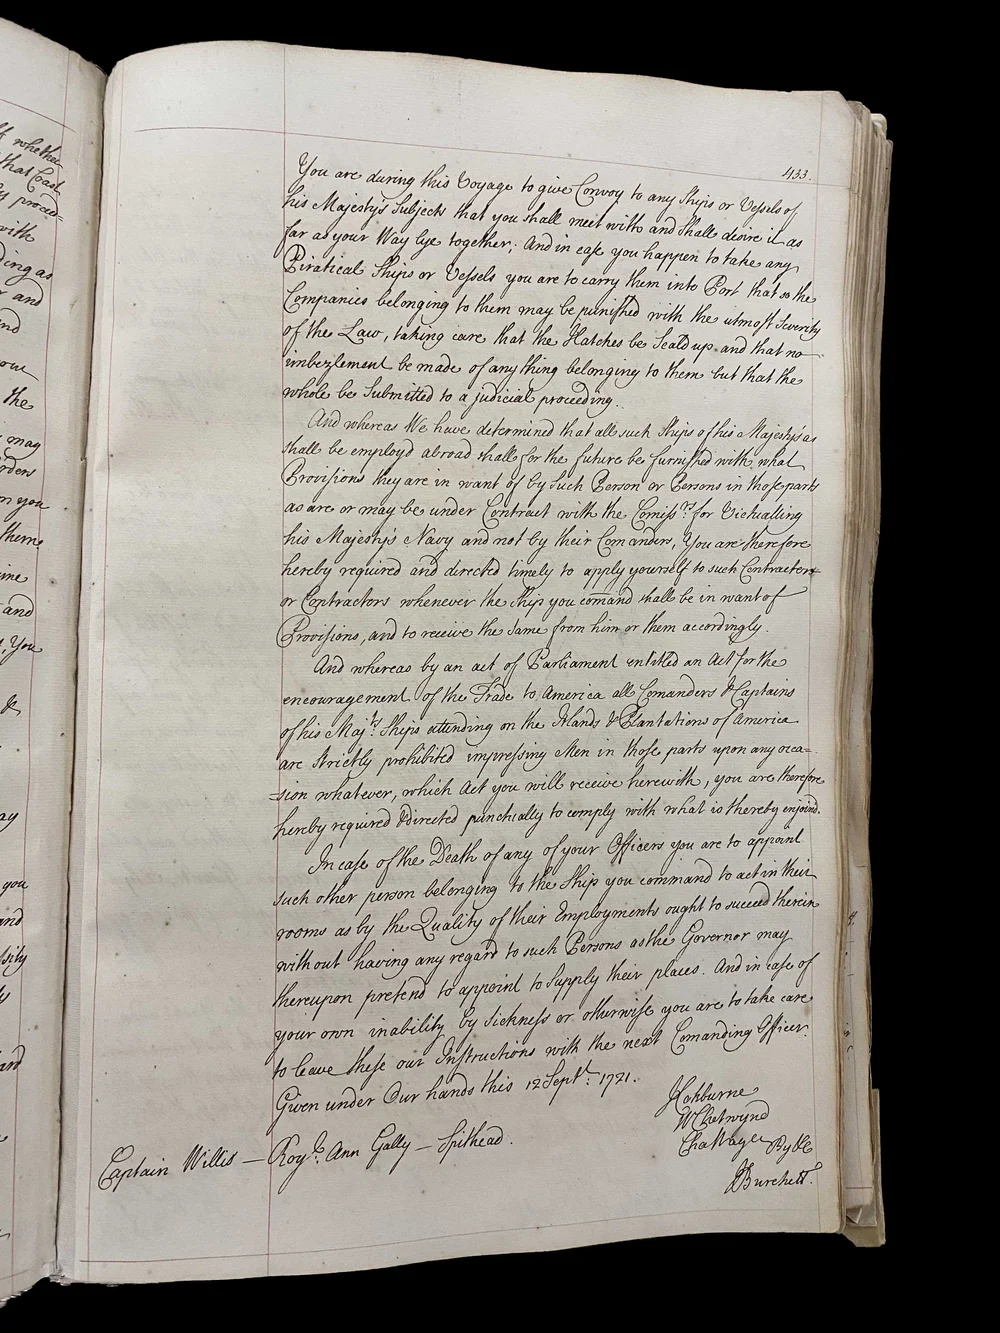 433.
You are during this Voyage to give Convoy to any Ships or Vessels of
his Majesty's Subjects that you shall meet with and shall desire it as
far as your Way lye together; And in case you happen to take any
Piratical Ships or Vessels you are to carry them into Port that so the
Companies belonging to them may be punished with the utmost Severity
of the Law, taking care that the Hatches be Seald up and that no
imbezlement be made of any thing belonging to them but that the
whole be Submitted to a judicial proceeding.
And whereas We have determined that all such Ships of his Majesty's as
shall be employd abroad shall for the future be furnished with what
Provisions they are in want of by Such Person or Persons in those parts
as are or may be under Contract with the Comiss.rs for Victualling
his Majesty's Navy and not by their Comanders, You are therefore
hereby required and directed timely to apply yourself to such Contractor
or Contractors whenever the Ship you comand shall be in want of
Provisions, and to receive the same from him or them accordingly.
And whereas by an act of Parliament entitled an Act for the
encouragement of the Trade to America all Comanders & Captains
of his Maj.ts Ships attending on the Islands & Plantations of America
are strictly prohibited impressing Men in those parts upon any occa=
=sion whatever, which Act you will receive herewith, you are therefore
hereby required & directed punctually to comply with what is thereby enjoind.
In case of the Death of any of your Officers you are to appoint
such other person belonging to the Ship you command to act in their
rooms as by the Quality of their Employments ought to succeed therein
without having any regard to such Persons as the Governor may
thereupon pretend to appoint to Supply their places. And in case of
your own inability by Sickness or otherwise you are to take care
to leave these our Instructions with the next Comanding Officer.
Given under Our hands this 12 Sept.r 1721.
J Cokburne
W Chetwynd
Cha Wager By &c
J Burchett.
Captain Willis — Roy.l Ann Gally — Spithead.